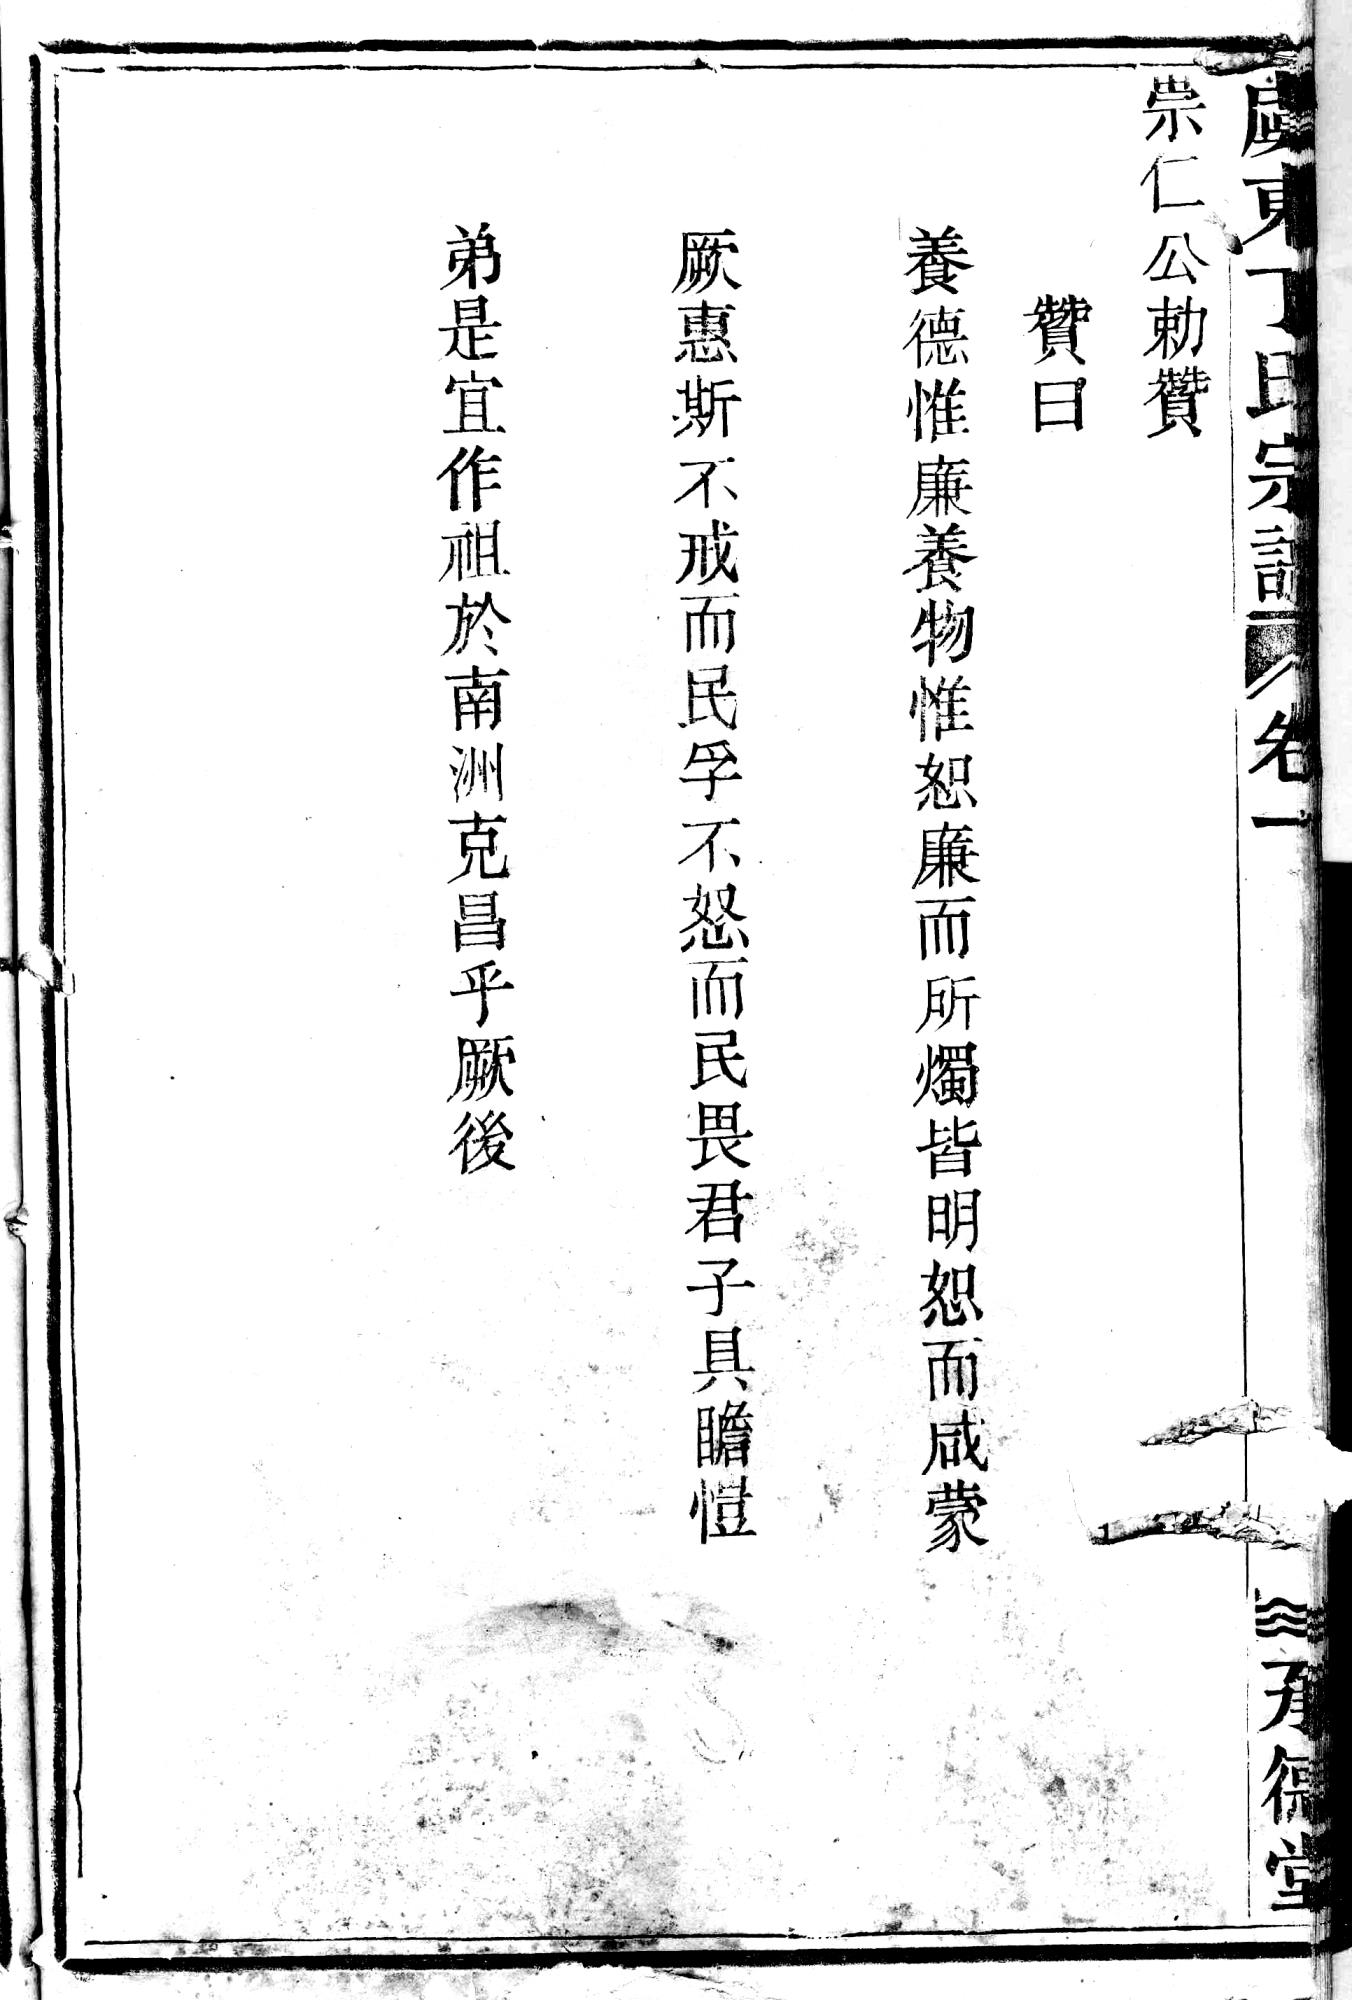 虞東丁氏宗譜 卷一 承德堂
崇仁公勅贊
贊曰
養德惟廉養物惟恕廉而所燭皆明恕而咸蒙
厥惠斯不戒而民孚不怒而民畏君子具瞻愷
弟是宜作祖於南洲克昌乎厥後